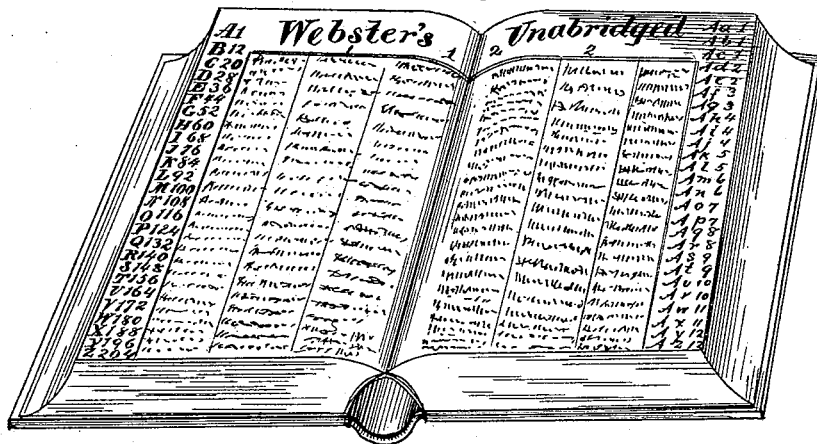 Webster's Unabridged
1 1 2 2
A 1
B 12
C 20
D 28
E 36
F 44
G 52
H 60
I 68
J 76
K 84
L 92
M 100
N 108
O 116
P 124
Q 132
R 140
S 148
T 156
U 164
V 172
W 180
X 188
Y 196
Z 204
Aa 1
Ab 1
Ac 1
Ad 2
Ae 2
Af 3
Ag 3
Ah 4
Ai 4
Aj 4
Ak 5
Al 5
Am 6
An 6
Ao 7
Ap 7
Aq 8
Ar 8
As 9
At 9
Au 10
Av 10
Aw 11
Ax 11
Ay 12
Az 12